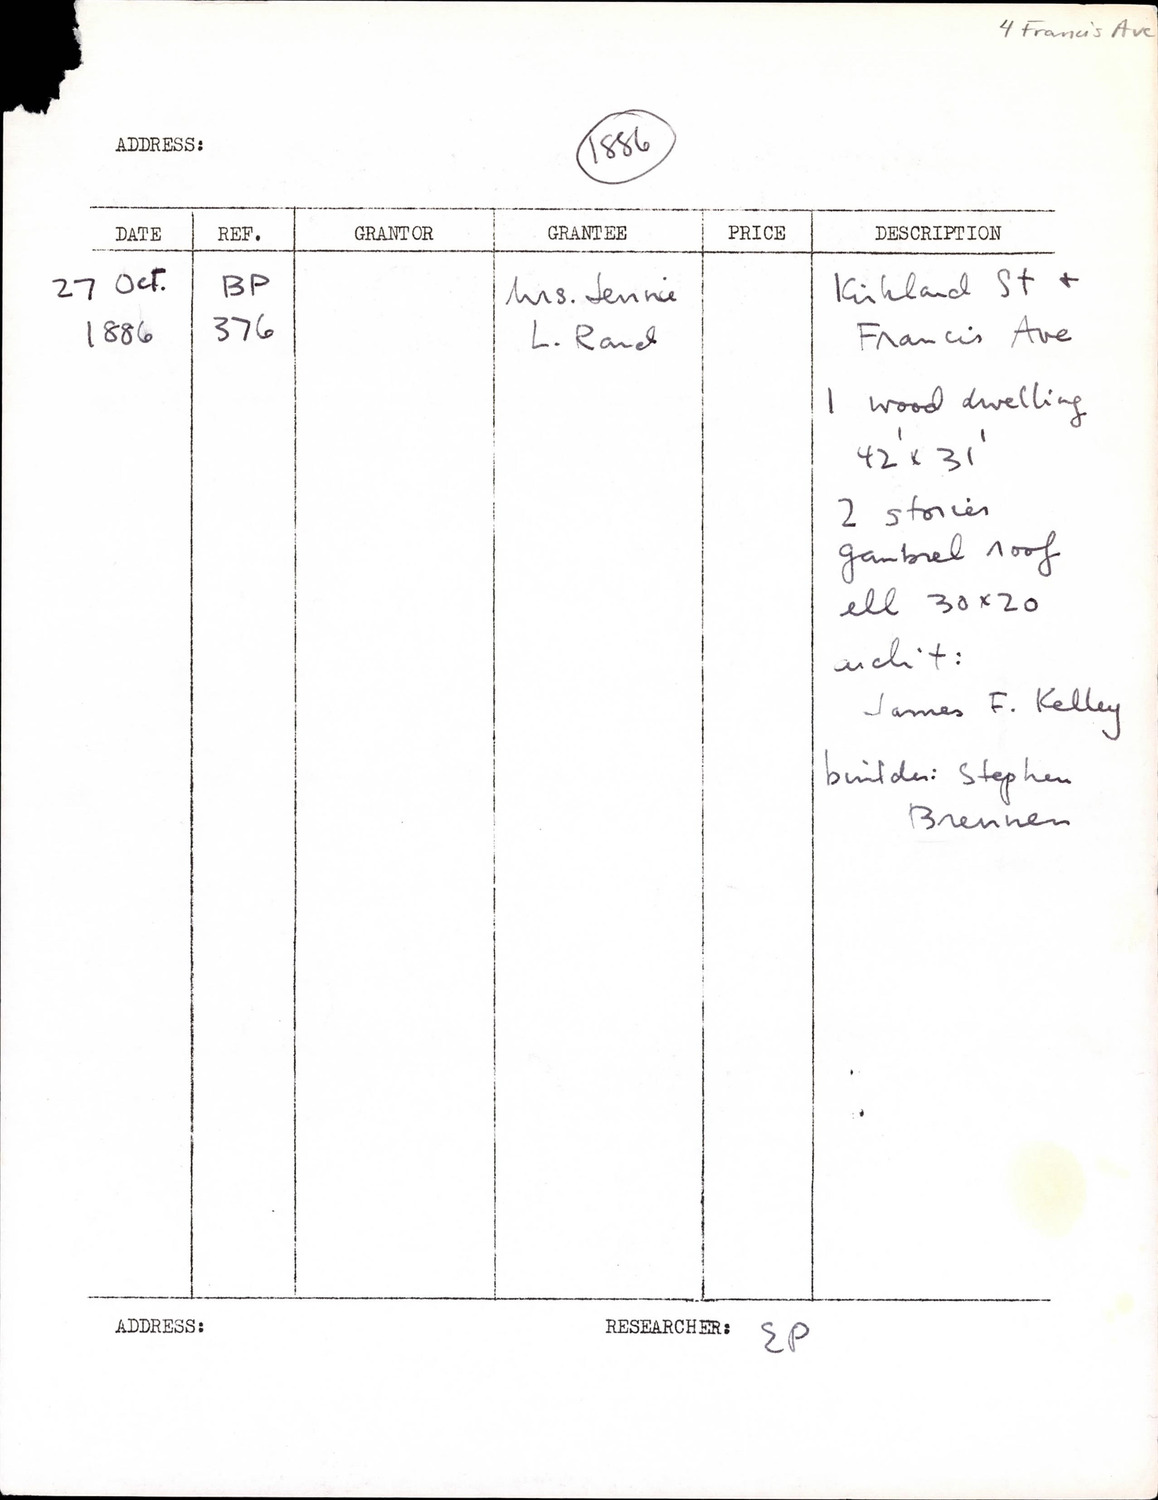 4 Francis Ave
ADDRESS:
1886
DATE REF. GRANTOR GRANTEE PRICE DESCRIPTION
27 Oct. BP Mrs. Jennie Kirkland St +
1886 376 L. Rand Francis Ave
1 wood dwelling
42' x 31'
2 stories
gambrel roof
ell 30 x 20
archit:
James F. Kelley
builder: Stephen
Brennen
ADDRESS: RESEARCHER: EP